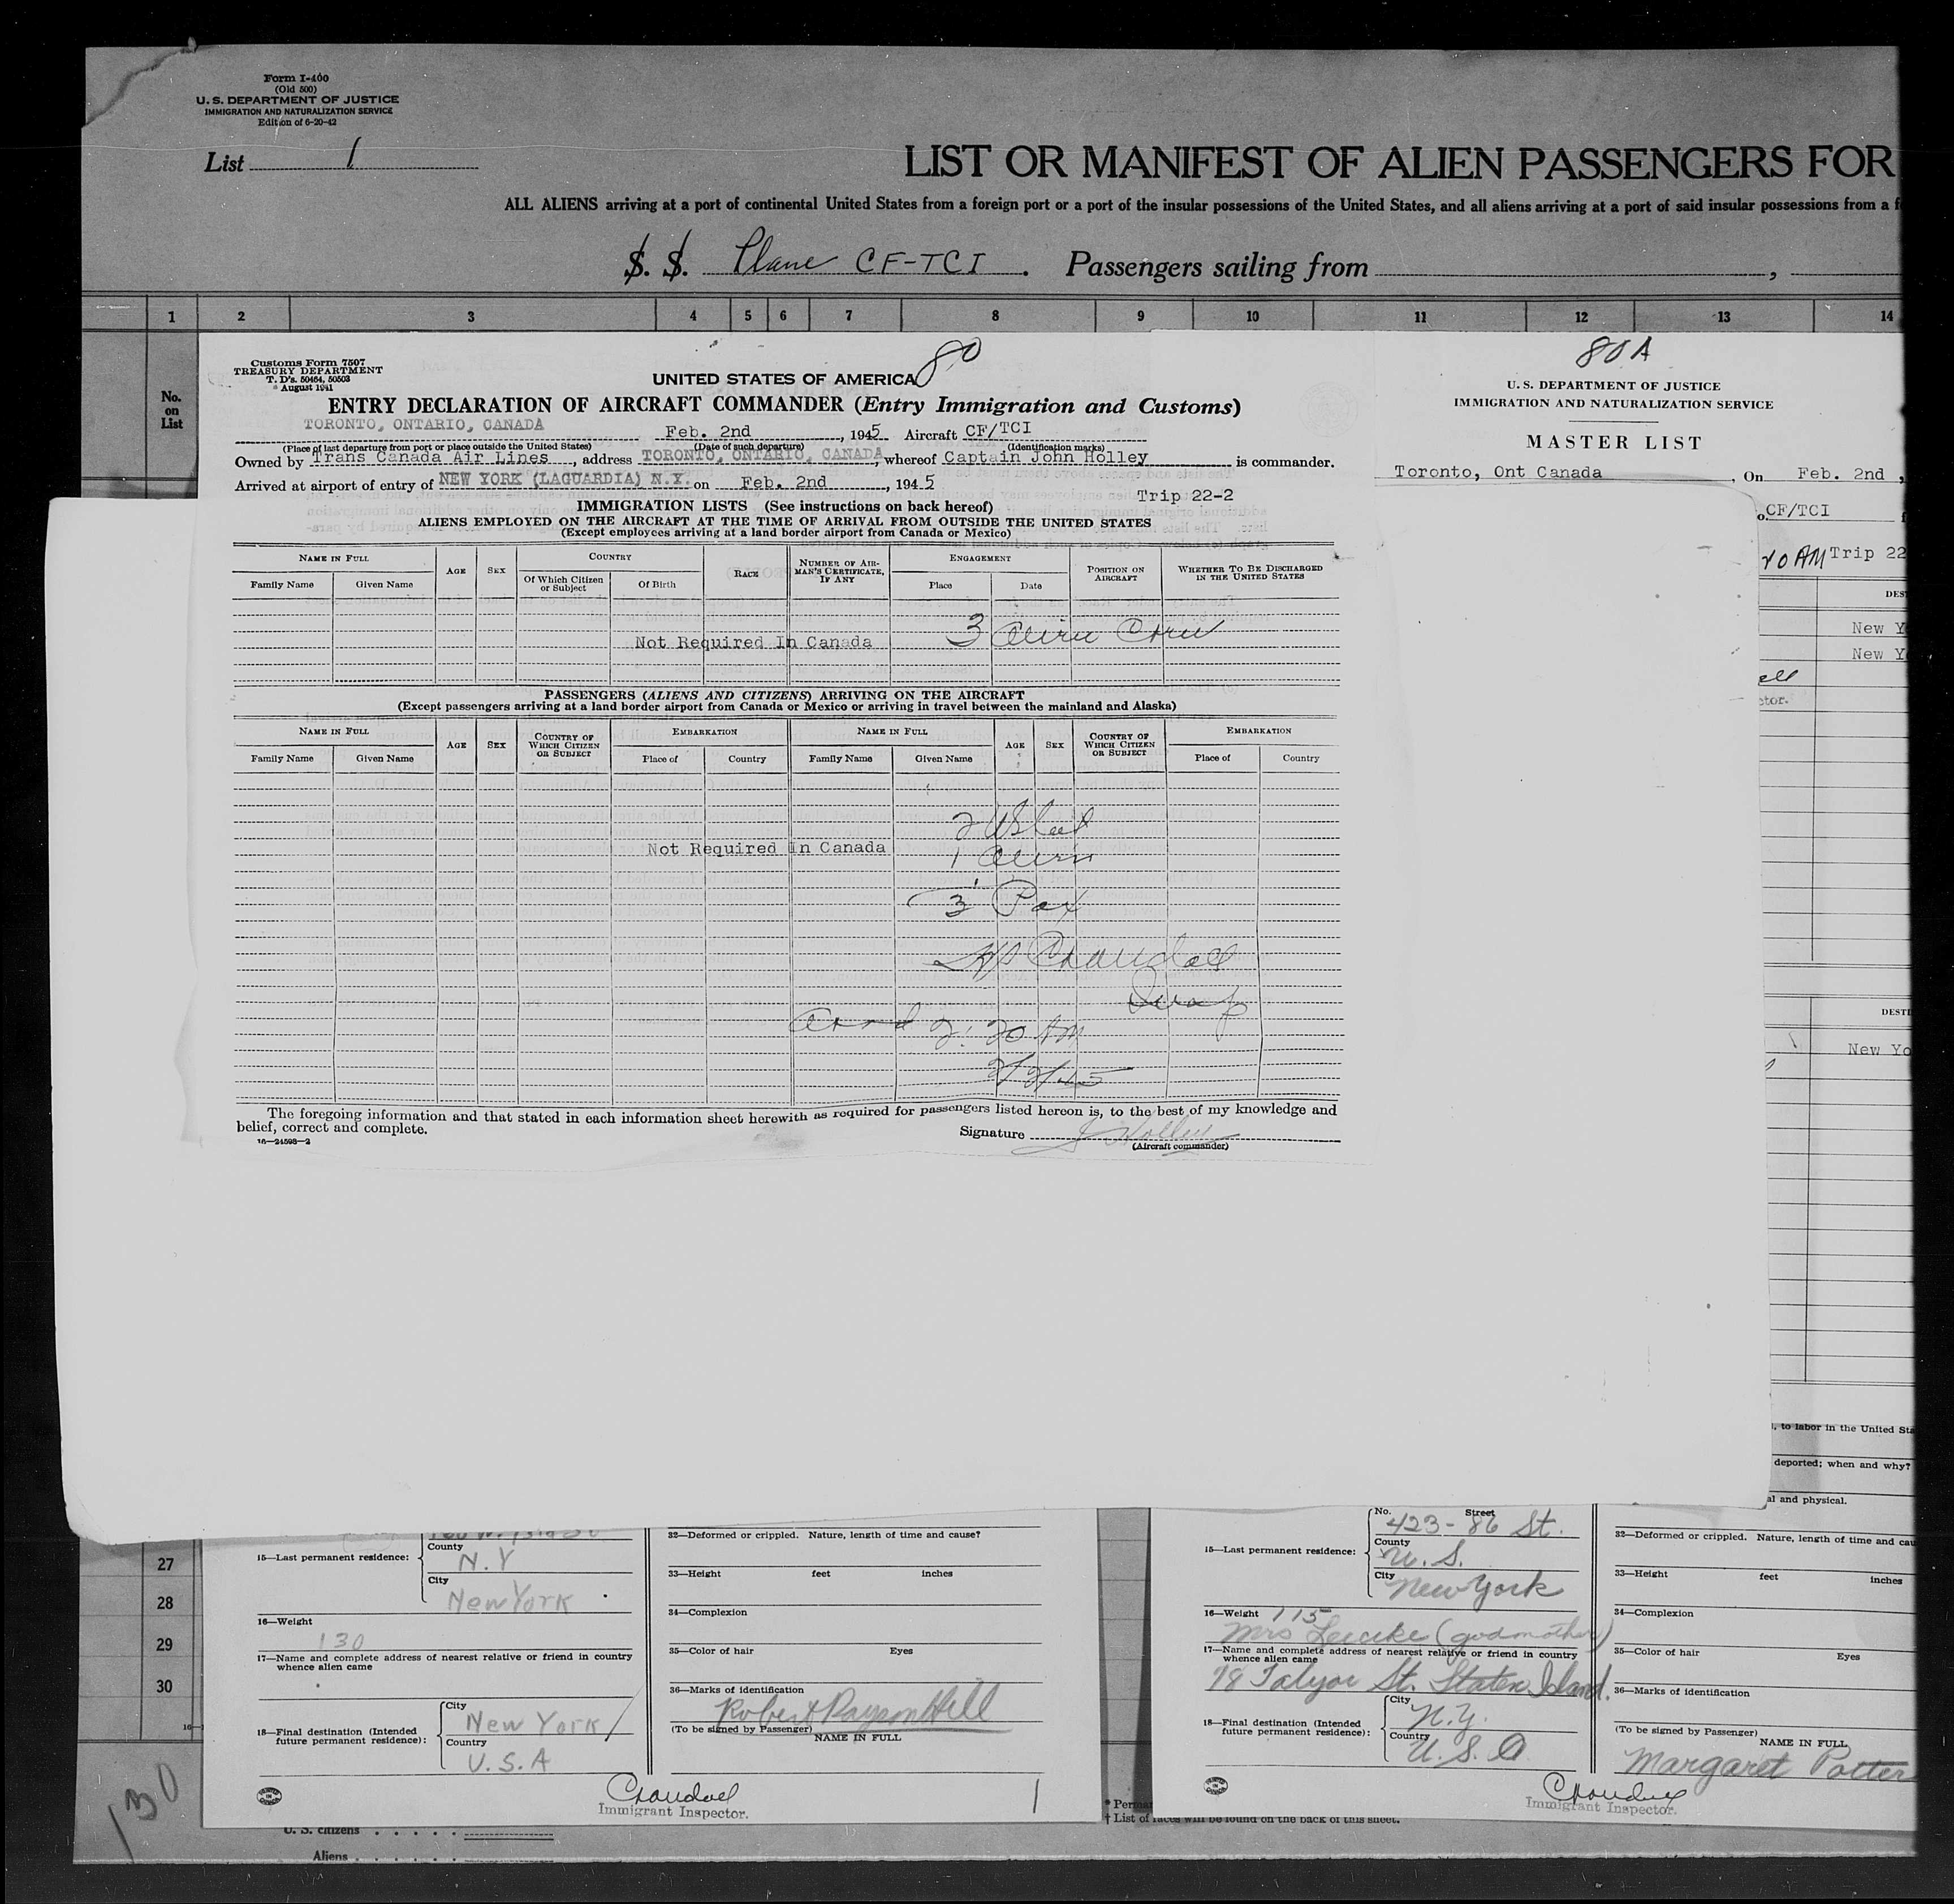 Form I-400
(Old 500)
U. S. DEPARTMENT OF JUSTICE
IMMIGRATION AND NATURALIZATION SERVICE
Edition of 6-20-42
List 1
LIST OR MANIFEST OF ALIEN PASSENGERS FOR
ALL ALIENS arriving at a port of continental United States from a foreign port or a port of the insular possessions of the United States, and all aliens arriving at a port of said insular possessions from a f
S. S. Plane CF-TCI . Passengers sailing from ,
1 2 3 4 5 6 7 8 9 10 11 12 13 14
No.
on
List
Customs Form 7507
TREASURY DEPARTMENT
T. D's. 50464, 50503
August 1941
80
UNITED STATES OF AMERICA
ENTRY DECLARATION OF AIRCRAFT COMMANDER (Entry Immigration and Customs)
TORONTO, ONTARIO, CANADA Feb. 2nd , 1945 Aircraft CF/TCI
(Place of last departure from port or place outside the United States) (Date of such departure) (Identification marks)
Owned by Trans Canada Air Lines , address TORONTO, ONTARIO, CANADA, whereof Captain John Holley is commander.
Arrived at airport of entry of NEW YORK (LAGUARDIA) N.Y. on Feb. 2nd , 1945
Trip 22-2
IMMIGRATION LISTS (See instructions on back hereof)
ALIENS EMPLOYED ON THE AIRCRAFT AT THE TIME OF ARRIVAL FROM OUTSIDE THE UNITED STATES
(Except employees arriving at a land border airport from Canada or Mexico)
NAME IN FULL AGE SEX COUNTRY RACE NUMBER OF AIRMAN'S CERTIFICATE, IF ANY ENGAGEMENT POSITION ON AIRCRAFT WHETHER TO BE DISCHARGED IN THE UNITED STATES
Family Name Given Name Of Which Citizen or Subject Of Birth Place Date
3 Alien Crew
Not Required In Canada
PASSENGERS (ALIENS AND CITIZENS) ARRIVING ON THE AIRCRAFT
(Except passengers arriving at a land border airport from Canada or Mexico or arriving in travel between the mainland and Alaska)
NAME IN FULL AGE SEX COUNTRY OF WHICH CITIZEN OR SUBJECT EMBARKATION NAME IN FULL AGE SEX COUNTRY OF WHICH CITIZEN OR SUBJECT EMBARKATION
Family Name Given Name Place of Country Family Name Given Name Place of Country
2
Not Required in Canada
1 Alien
3 Pax
2:20 AM
2/2/45
The foregoing information and that stated in each information sheet herewith as required for passengers listed hereon is, to the best of my knowledge and
belief, correct and complete.
16—24598—2
Signature J Holley
(Aircraft commander)
80A
U. S. DEPARTMENT OF JUSTICE
IMMIGRATION AND NATURALIZATION SERVICE
MASTER LIST
Toronto, Ont Canada , On Feb. 2nd ,
o. CF/TCI f
20 AM Trip 22
DES
New Y
New Y
ell
ctor.
DESTI
New Yo
l, to labor in the United Sta
deported; when and why?
al and physical.
27
28
29
30
15—Last permanent residence:
County
N.Y
City
New York
16—Weight
130
17—Name and complete address of nearest relative or friend in country
whence alien came
18—Final destination (Intended
future permanent residence):
City
New York
Country
U.S.A
32—Deformed or crippled. Nature, length of time and cause?
33—Height feet inches
34—Complexion
35—Color of hair Eyes
36—Marks of identification
Robert Rayson Hill
(To be signed by Passenger)
NAME IN FULL
Immigrant Inspector.
1
No. Street
423-86 St.
15—Last permanent residence:
County
U.S.
City
New York
16—Weight 115
17—Name and complete address of nearest relative or friend in country
whence alien came
Mrs (godmother)
98 Talyor St. Staten Island.
18—Final destination (Intended
future permanent residence):
City
N.Y.
Country
U.S.A
32—Deformed or crippled. Nature, length of time and cau
33—Height feet inches
34—Complexion
35—Color of hair Eyes
36—Marks of identification
(To be signed by Passenger)
NAME IN FULL
Margaret Potter
Immigrant Inspector.
* Perma
† List of races will be found on the back of this sheet.
130
U. S. citizens
Aliens